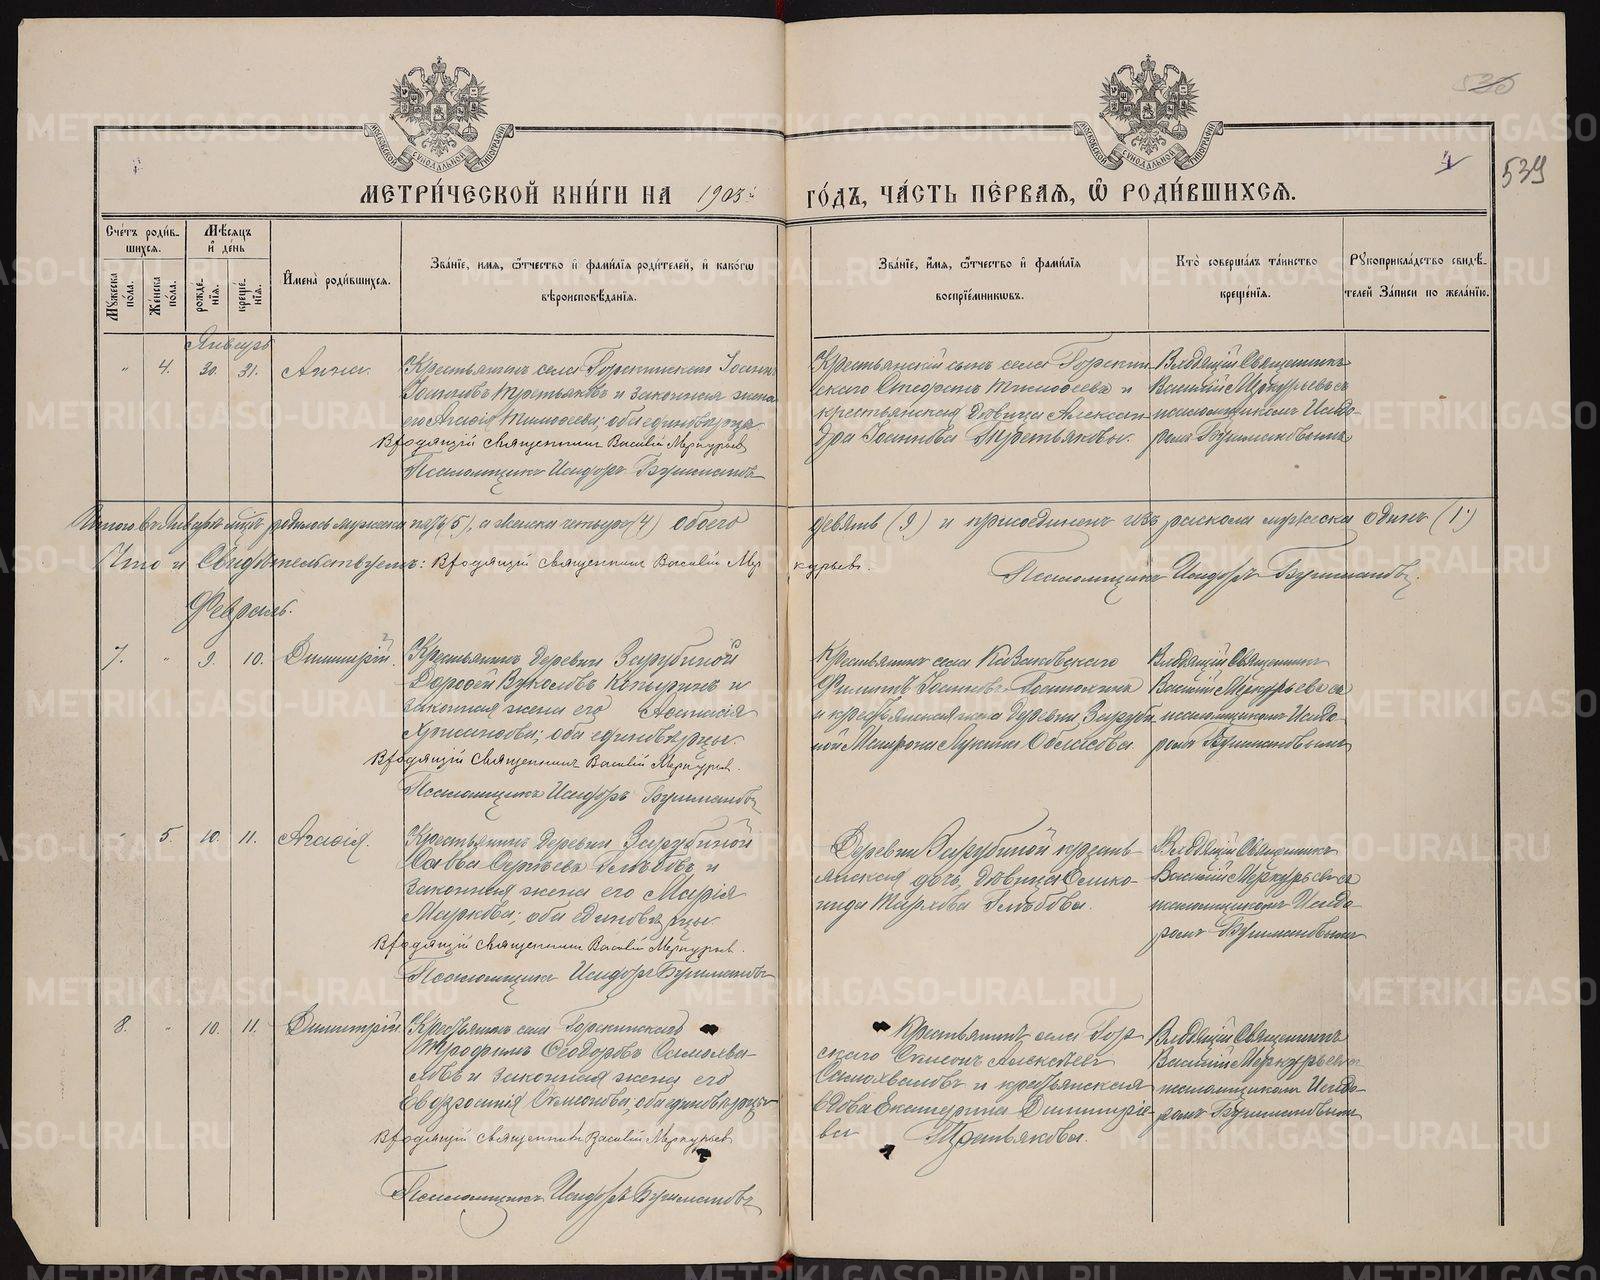 МОСКОВСКОЙ СѴНОДАЛЬНОЙ ТИПОГРАФІИ
МОСКОВСКОЙ СѴНОДАЛЬНОЙ ТИПОГРАФІИ
4
539
МЕТРИ́ЧЕСКОЙ КНИ́ГИ НА 1903й ГО́ДЪ, ЧА́СТЬ ПЕ́РВАЯ, Ѽ РОДИ́ВШИХСЯ.
Сче́тъ роди́в-
шихся.
Мѣ́сяцъ
и҆ де́нь
Му́жеска по́ла.
Же́нска по́ла.
рожде́-
нїя.
креще́-
нїя.
И҆мена̀ роди́вшихся.
Зва́нїе, и҆́мя, ѻ҆́тчество и҆ фами́лїя роди́телей, и҆ како́гѡ
вѣроисповѣ́данїя.
Зва́нїе, и҆́мя, ѻ҆́тчество и҆ фами́лїя
воспрїе́мникѡвъ.
Кто̀ соверша́лъ та́инство
креще́нїя.
Рꙋкоприкла́дство свидѣ́-
телей За́писи по жела́нїю.
Январь
" 4. 30. 31. Анна.
Крестьянинъ села Горскинскаго Іоаннъ
Іоанновъ Третьяковъ и законная жена
его Агаѳія Тимоѳеева; оба единовѣрцы.
Входящій Священникъ Василій Меркурьев
Псаломщикъ Исидоръ Бушмановъ
Крестьянскій сынъ села Горскин
скаго Стефанъ Тимоѳеевъ и
крестьянская дѣвица Алексан-
дра Іоаннова Третьяковы.
Входящій Священникъ
Василій Меркурьевъ съ
псаломщикомъ Исидо-
ромъ Бушмановымъ
Итого въ Январѣ м-цѣ родилось мужеска пять (5), а женска четыре (4) обоего девять (9) и присоединенъ изъ раскола мужеска одинъ (1.)
Что и Свидѣтельствуемъ: Входящій священникъ Василій Меркурьев.
Псаломщикъ Исидоръ Бушмановъ.
Февраль.
7. " 9. 10. Димитрій.
Крестьянинъ деревни Зарубиной
Дороѳей Вуколовъ Копыринъ и
законная жена его Аѳанасія
Хрисанѳова; оба единовѣрцы.
Входящій Священникъ Василій Меркурьев.
Псаломщикъ Исидоръ Бушмановъ
Крестьянинъ села Казаковскаго
Филиппъ Іоанновъ
и крестьянская жена деревни Заруби
ной Матрона Лукина
Входящій Священникъ
Василій Меркурьевъ съ
псаломщикомъ Исидо-
ромъ Бушмановымъ
" 5. 10. 11. Агаѳія.
Крестьянинъ деревни Зарубиной
Савва Сергѣевъ Глѣбовъ и
законная жена его Марія
Маркова; оба единовѣрцы.
Входящій Священникъ Василій Меркурьев.
Псаломщикъ Исидоръ Бушмановъ
Деревни Зарубиной кресть-
янская дочь, дѣвица
Глѣбова.
Входящій Священникъ
Василій Меркурьевъ съ
псаломщикомъ Исидо
ромъ Бушмановымъ
8. " 10. 11. Димитрій.
Крестьянинъ села Горскинскаго
Трофимъ Ѳеодоровъ Самохва-
ловъ и законная жена его
Евфросинія Симеонова; оба единовѣрцы
Входящій священникъ Василій Меркурьев
Псаломщикъ Исидоръ Бушмановъ
Крестьянинъ села Гор
скаго Симеонъ Алексѣевъ
Самохваловъ и крестьянская
вдова Екатерина Димитріе-
ва Третьякова.
Входящій Священникъ
Василій Меркурьевъ съ
псаломщикомъ Исидо-
ромъ Бушмановымъ
METRIKI.GASO-URAL.RU